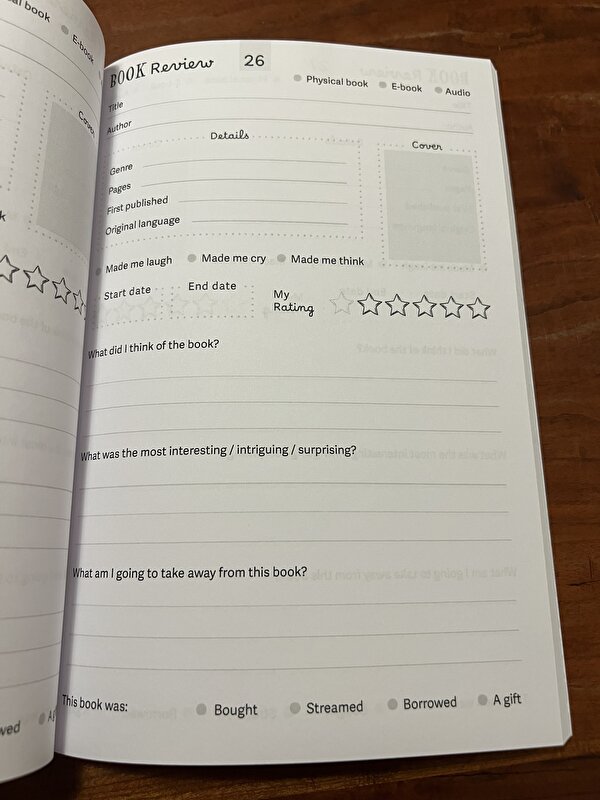 BOOK Review 26
Physical book E-book Audio
Title
Author
Details
Cover
Genre
Pages
First published
Original language
Made me laugh Made me cry Made me think
Start date End date
My
Rating
What did I think of the book?
What was the most interesting / intriguing / surprising?
What am I going to take away from this book?
This book was: Bought Streamed Borrowed A gift
book
E-book
Cover